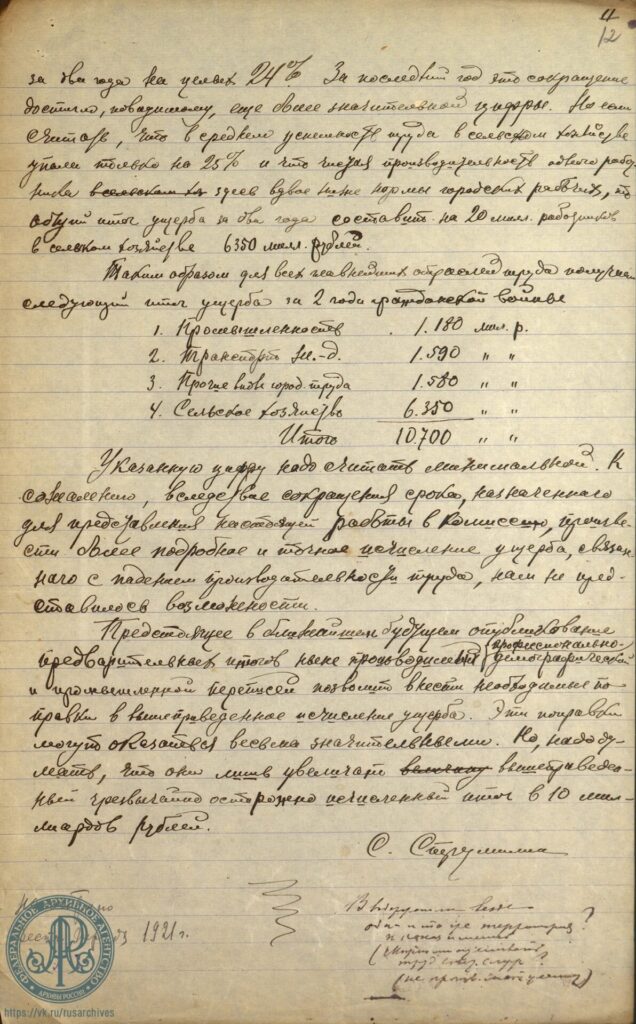 4
12
за два года на целых 24% За последний год это сокращение
достигло, повидимому, еще более значительной цифры. Но если
считать, что в среднем успешность труда в сельском хозяйстве
упала только на 25% и что чистая производительность одного рабо-
тника в сельском хо здесь вдвое ниже нормы городских рабочих, то
общий итог ущерба за два года составит на 20 милл. работников
в сельском хозяйстве 6350 милл. рублей.
Таким образом для всех главнейших отраслей труда получаем
следующий итог ущерба за 2 года гражданской войны
1. Промышленность 1.180 мил. р.
2. Транспорт ж.-д. 1.590 " "
3. Прочие виды город. труда 1.580 " "
4. Сельское хозяйство 6.350 " "
Итого 10.700 " "
Указанную цифру надо считать минимальной. К
сожалению, вследствие сокращения срока, назначенного
для представления настоящей работы в Комиссию, произве-
сти более подробное и точное исчисление ущерба, связан-
ного с падением производительности труда, нам не пред-
ставилось возможности.
Предстоящее в ближайшем будущем опубликование
предварительных итогов ныне производимой профессионально-
демографической
и промышленной переписей позволит внести необходимые по-
правки в вышеприведенное исчисление ущерба. Эти поправки
могут оказаться весьма значительными. Но, надо ду-
мать, что они лишь увеличат величину выше приведен-
ный чрезвычайно осторожно исчисленный итог в 10 мил-
лиардов рублей.
С. Струмилин
1921 г.
одна и та же территория ?
ФЕДЕРАЛЬНОЕ АРХИВНОЕ АГЕНТСТВО
АРХИВЫ РОССИИ
https://vk.ru/rusarchives